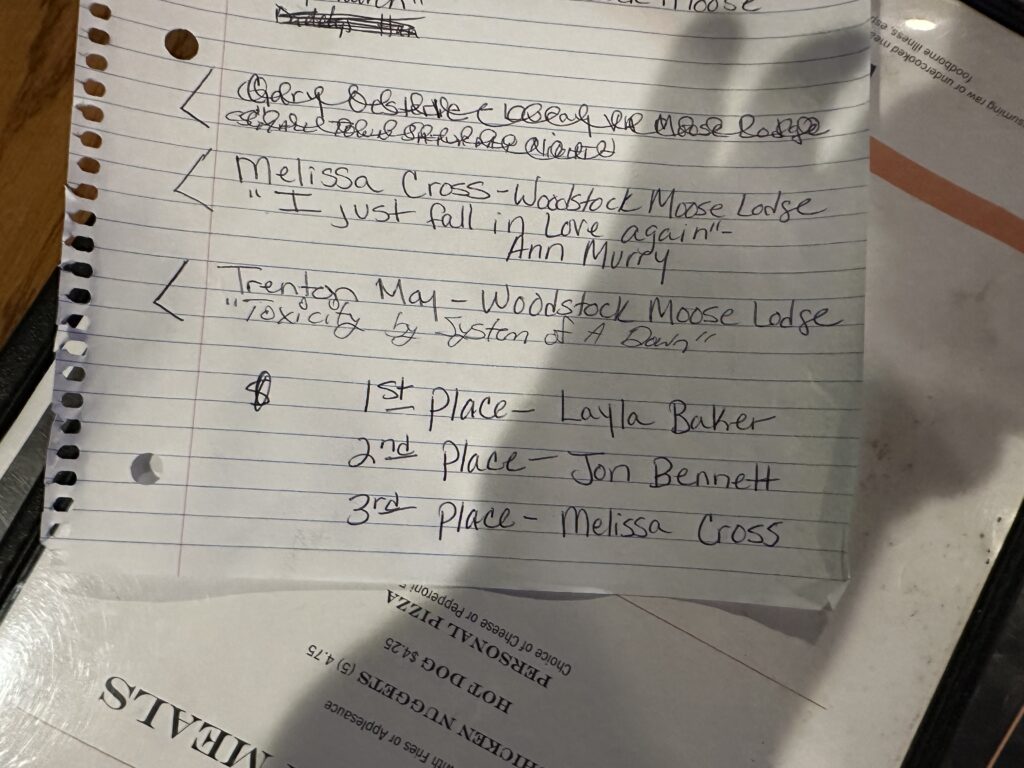 Moose
Moose Lodge
Melissa Cross-Woodstock Moose Lodge
"I just fall in Love again"-
Ann Murry
Trenton May - Woodstock Moose Lodge
"Toxicity by System of A Down"
$ 1st Place - Layla Baker
2nd Place - Jon Bennett
3rd Place - Melissa Cross
suming raw or undercooked mea
foodborne illness, esp
Choice of Cheese or Pepperoni
PERSONAL PIZZA
HOT DOG $4.25
HICKEN NUGGETS (5) 4.75
with Fries or Applesauce
MEALS